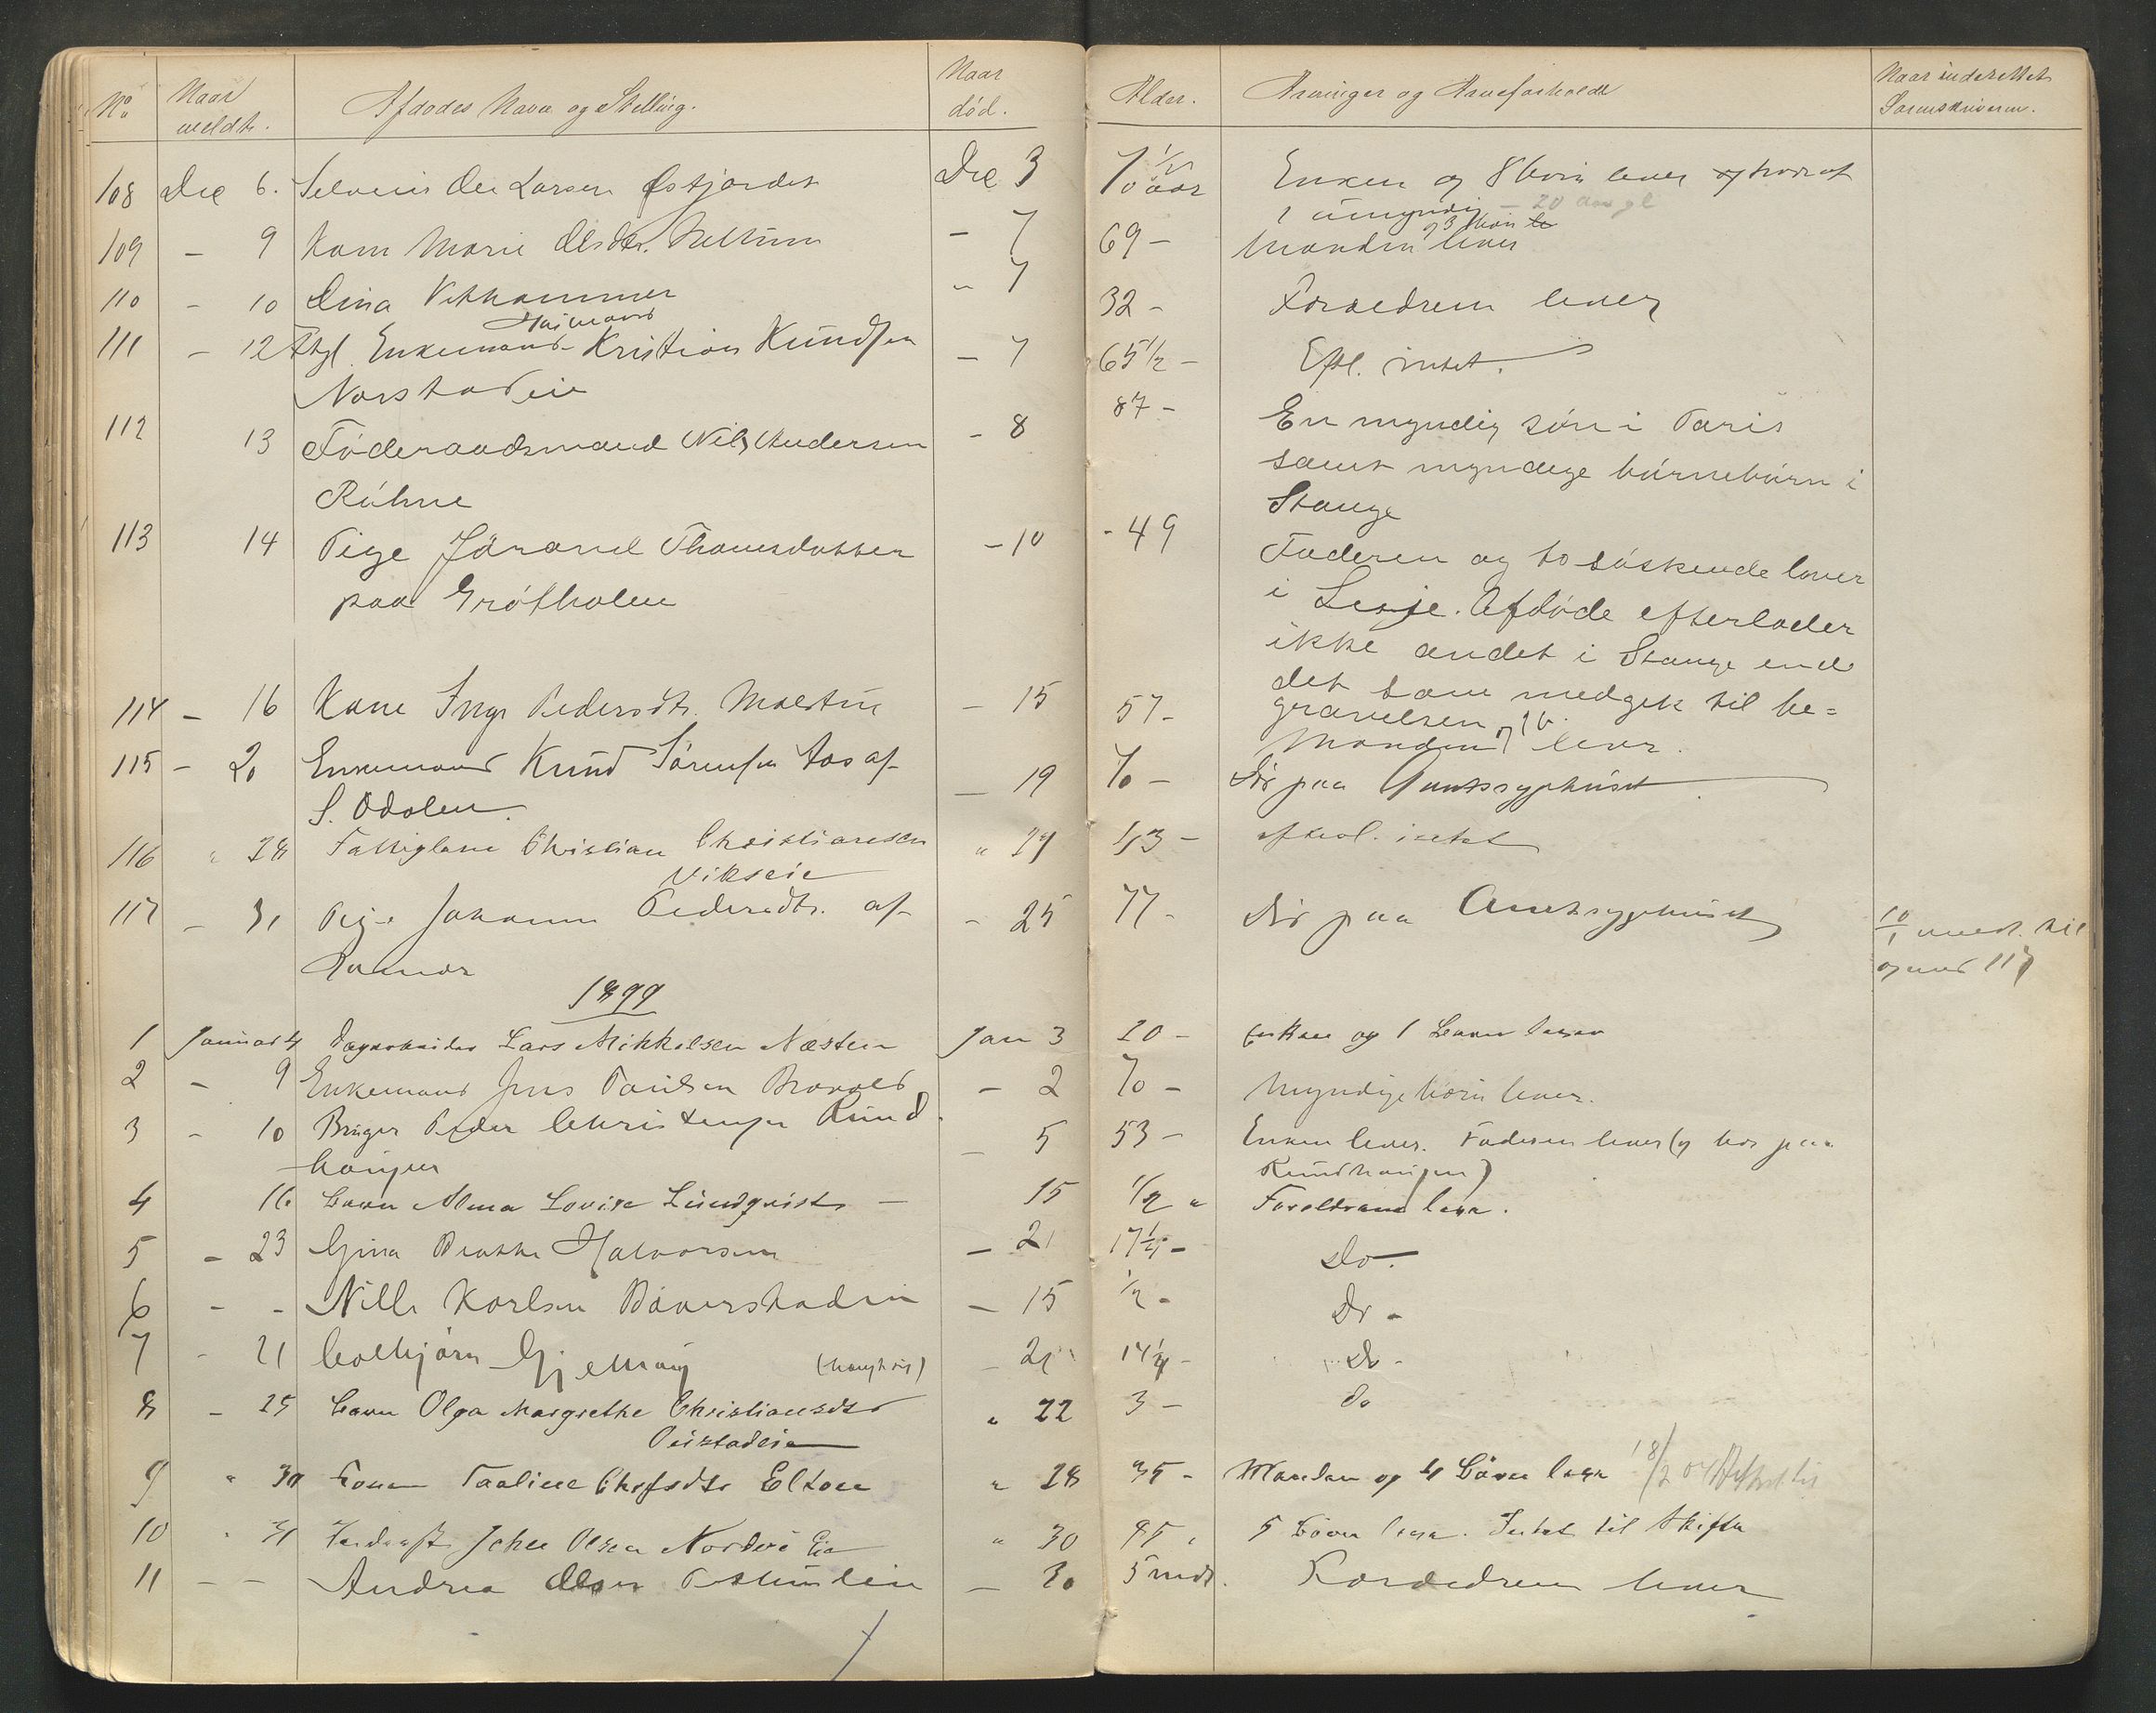 No Naar meldt. Afdødes Navn og Stilling. Naar død. Alder. Arvinger og Arveforholdt Naar inderettet Sorenskriveren.
108 Dec 6. Selveier Ole Larsen Østjordet Dec 3 70 1/2 aar Enken og 8 børn lever hvoraf
1 umyndig - 20 aar gl
og 3 børn
109 - 9 Kone Marie Olsdtr. - 7 69 - Manden lever
110 - 10 Dina Vethammer " 7 32 - Forældrene lever
Huimand
111 - 12 Fhgl. Enkemand Kristian Knudsen - 7 65 1/2 - Eftl. intet.
Norstadeie
112 13 Føderaadsmand Nils Andersen - 8 87 - En myndig søn i Paris
samt myndige børnebørn i
Røhne Stange
113 14 Pige Jørand Thomasdatter - 10 - 49 Faderen og to søskende lever
paa Grøtholen i Lesje. Afdøde efterlader
ikke andet i Stange end
det som medgik til be=
gravelsen
114 - 16 Kone Inga Pedersdtr. Maestue - 15 57 - Manden og lever.
115 - 20 Enkemand Knud Sørensen Aas af - 19 70 - Dø paa Amtssygehuset
S. Odalen.
116 " 28 Fattiglem Christian Christiansen " 27 43 - efterl. intet
Vikseie
117 - 31 Pige Johanne Pedersdtr. af - 25 77 - Død paa Amtssygehuset 10/1 medt. til
Romedr og med 117
1899
1 Januar 4 Dagarbeider Lars Mikkelsen Næsten Jan 3 20 - Enken og 1 Barn lever
2 - 9 Enkemand Jens Paulsen - 2 70 - Myndige børn lever.
3 - 10 Bruger Peder Christensen Rund - 5 53 - Enken lever. Faderen lever (og bor paa
haugen Rundhaugen)
4 16 Barn Alma Lovise Lundqvist - 15 1/2 " Forældrene lever.
5 - 23 Gina Halvorsen - 21 17 1/4 - Do -
6 - - Nille Karlsen Bäverstadeie - 15 1/2 - Do -
7 - 21 Colbjørn Gjellhaug - 21 14 1/4 - Do -
8 - 25 Barn Olga Margrethe Christiansdtr " 22 3 - do
9 " 30 Kone Pauline Chrfsdtr Elton " 28 35 - Manden og 4 Børn lever 18/2 04
10 " 31 Inderst Johan Olsen Nordvi Eie " 30 95 " 5 Børn lever. Intet til Skifte
11 - - Andrea Olsen - 30 5 mdr. Forældrene lever